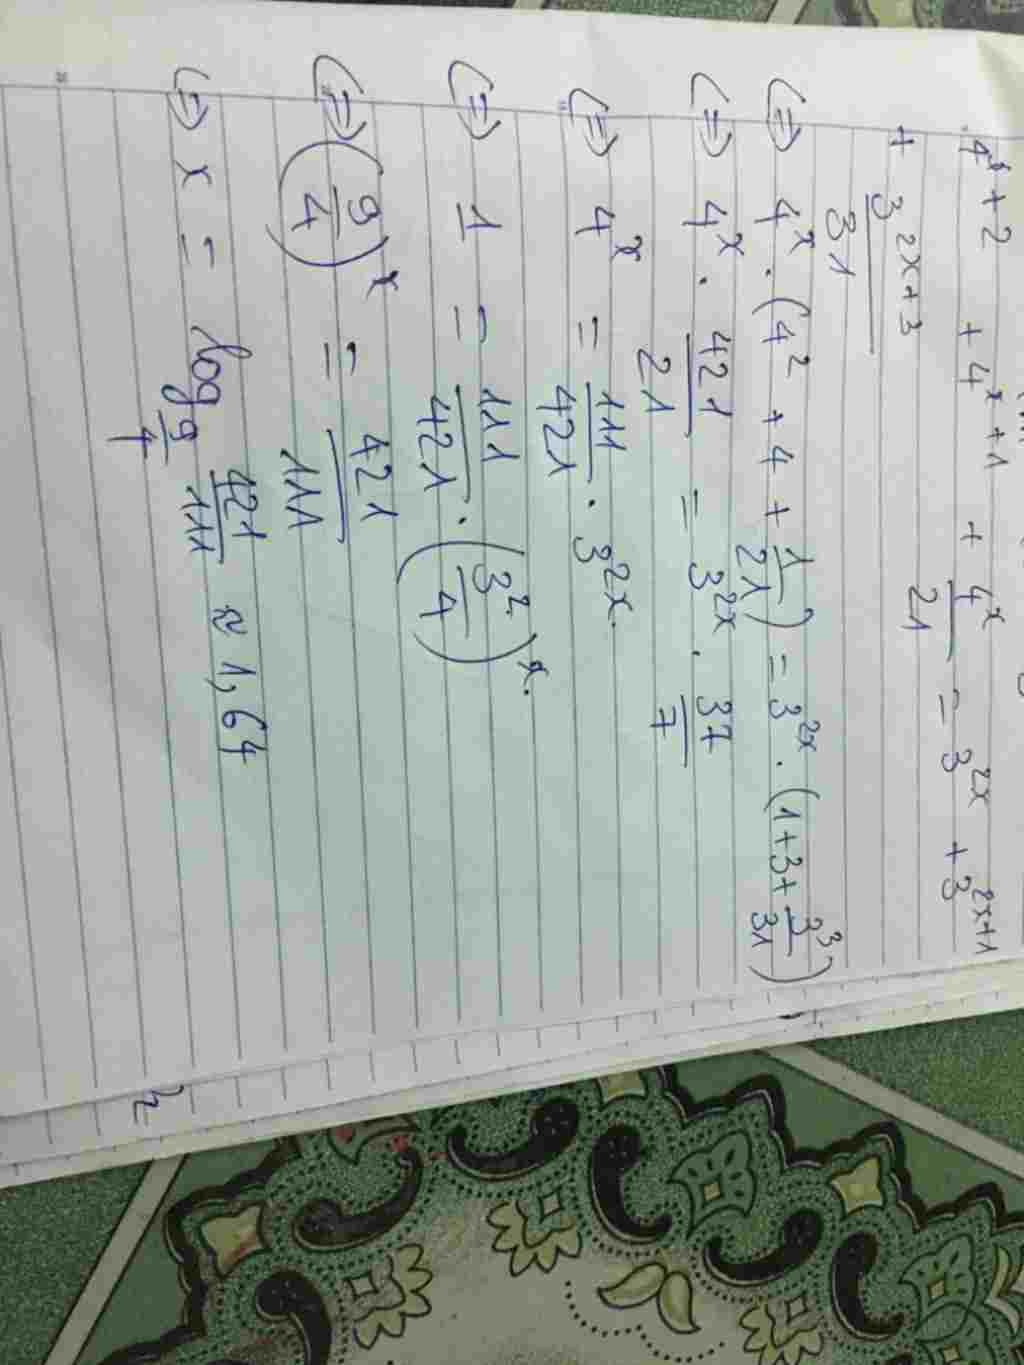 4^{x+2} + 4^{x+1} + \frac{4^x}{21} = 3^{2x} + 3^{2x+1}
+ \frac{3^{2x+3}}{31}
(=) 4^x . (4^2 + 4 + \frac{1}{21}) = 3^{2x} . (1+3+\frac{3^3}{31})
(=) 4^x . \frac{421}{21} = 3^{2x} . \frac{37}{7}
(=) 4^x = \frac{111}{421} . 3^{2x}.
(=) 1 = \frac{111}{421} . (\frac{3^2}{4})^x.
(=) (\frac{9}{4})^x = \frac{421}{111}
(=) x = log_{\frac{9}{4}} \frac{421}{111} ≈ 1,64